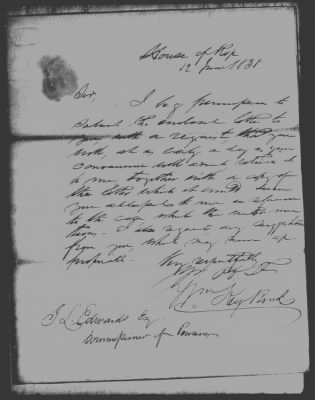 House of Rep
12 June 1838
Sir,
I beg permission to
submit the enclosed letter to
you, with a request that you
will, at as early a day as your
convenience will admit return it
to me together with a copy of
the letter which it
your
to me in reference
to the case which the
them. I also request any suggestion
from you, which may seem ap-
propriate.
Very respectfully
Yr
Wm Key Bond
J. L. Edwards Esq
Commissioner of Pensions